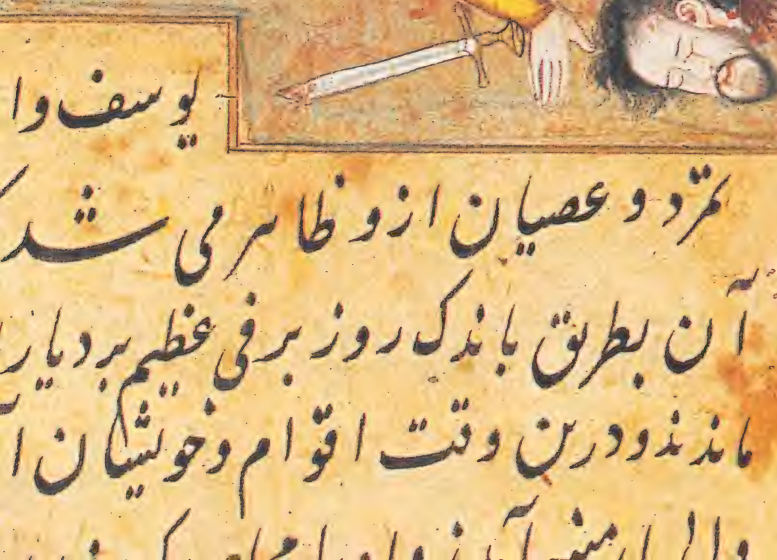 یوسف وا
تمرّد و عصیان ازو ظاهر می شد
آن بطریق باندک روز برفی عظیم بر دیار
ماندند و درین وقت اقوام و خویشان آ